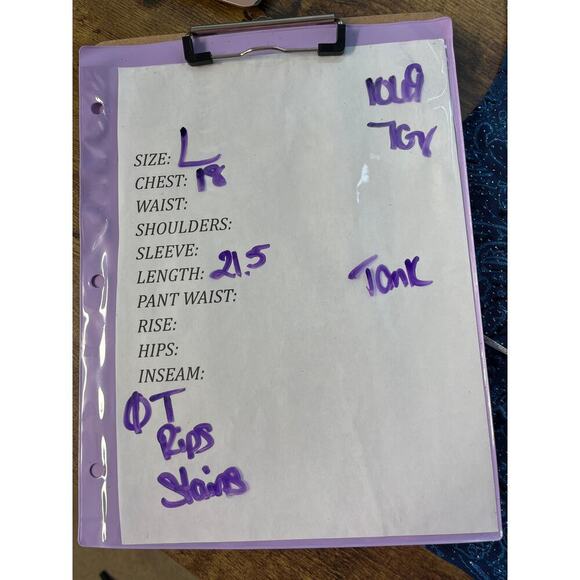 SIZE: L
CHEST: 18
WAIST:
SHOULDERS:
SLEEVE:
LENGTH: 21.5
PANT WAIST:
RISE:
HIPS:
INSEAM:
Tank
Rips
Stains